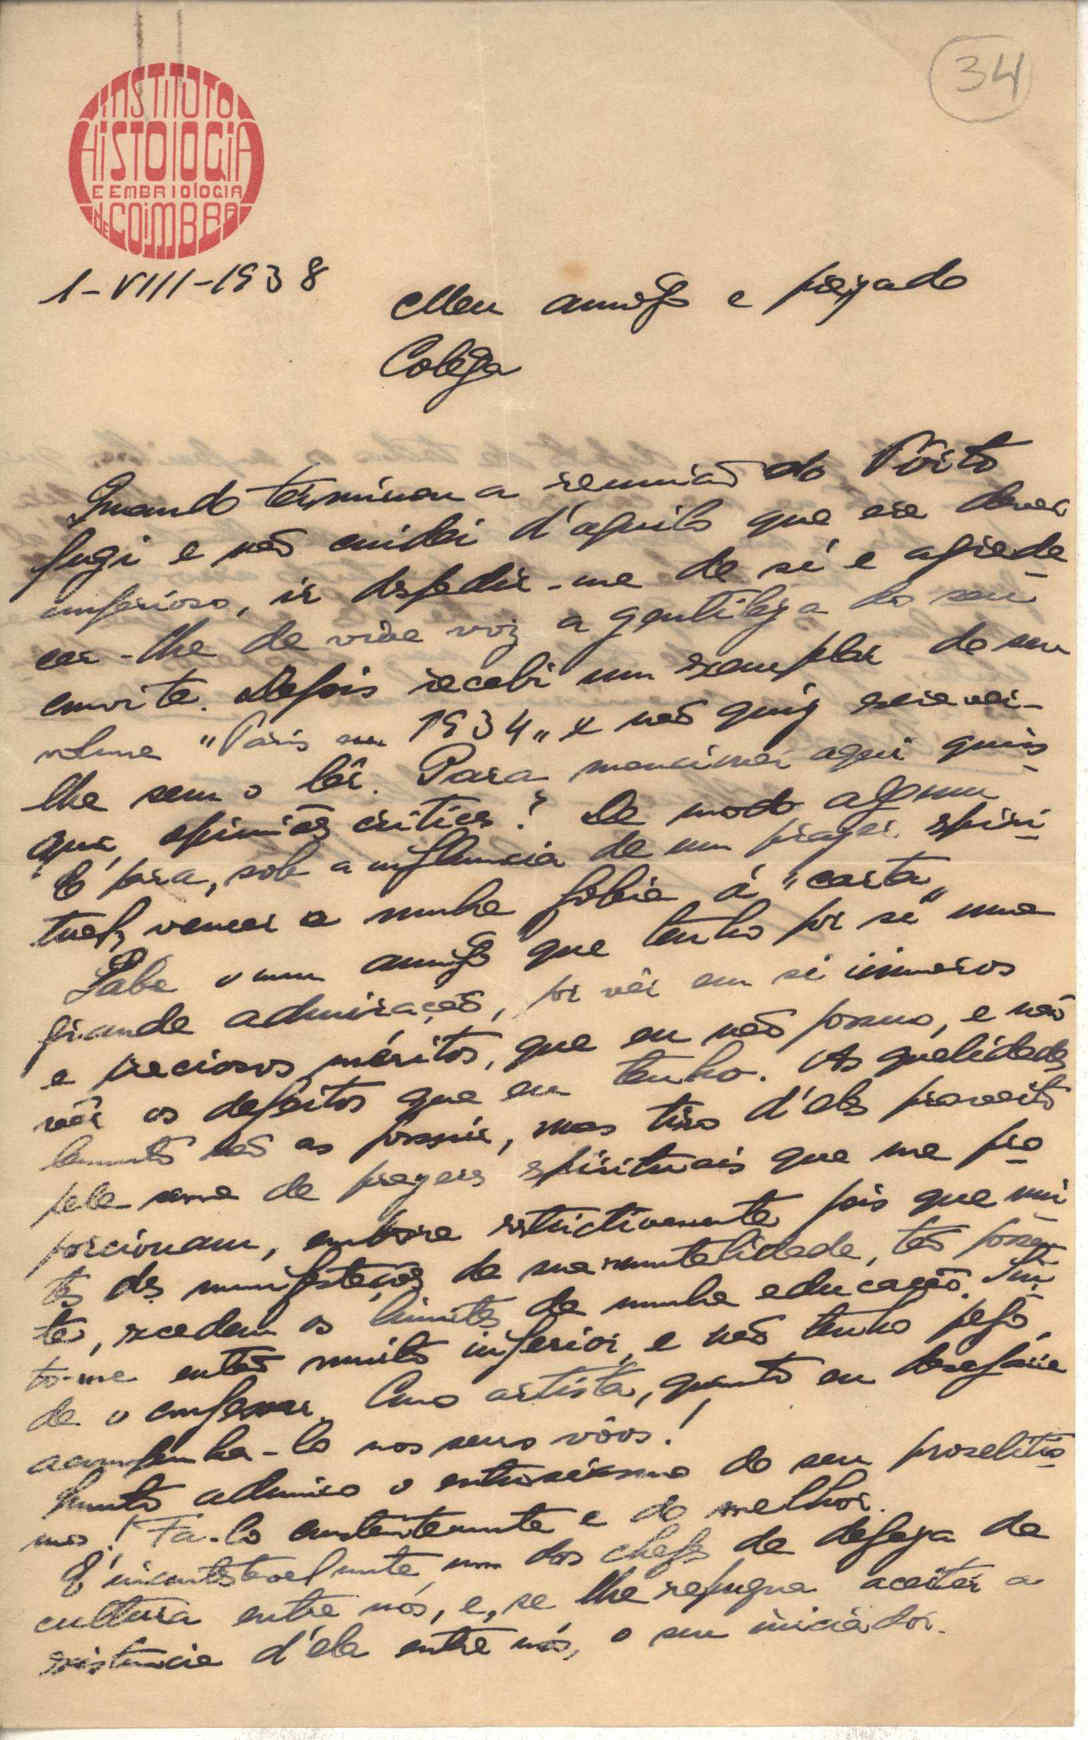 34
INSTITUTO
HISTOLOGIA
E EMBRIOLOGIA
DE COIMBRA
1-VIII-1938
Meu amigo e prezado
Colega
Quando terminou a reunião do Pôrto
fugi e não cuidei d'aquilo que era dever
imperioso, ir despedir-me de si e agrade-
cer-lhe de viva voz a gentileza do seu
convite. Depois recebi um exemplar do seu
volume "Paris em 1934" e não quiz escrever-
lhe sem o lêr. Para mencionar aqui quais-
quer opiniões criticas? De modo algum
É para, sob a influencia de um prazer espiri-
tual, vencer a minha fobia á "carta"
Sabe o meu amigo que tenho por si uma
grande admiração, por vêr em si inumeros
e preciosos méritos, que eu não possuo, e não
vêr os defeitos que eu tenho. As qualidades
lamento não as possuir, mas tiro d'elas proveito
pela soma de prazeres espirituais que me pro-
porcionam, embora restrictivamente pois que mui-
tas das manifestações da sua mentalidade, tão possan-
te, excedem os limites da minha educação. Sin-
to-me então muito inferior, e não tenho pejo
de o confessar. Como artista, quanto eu desejaria
acompanha-lo nos seus vôos!
Muito admiro o entusiasmo do seu proselitis-
mo! Fa-lo constantemente e do melhor.
É incontestavelmente um dos chefes da defeza da
cultura entre nós, e, se lhe repugna aceitar a
existencia d'ela entre nós, o seu iniciador.